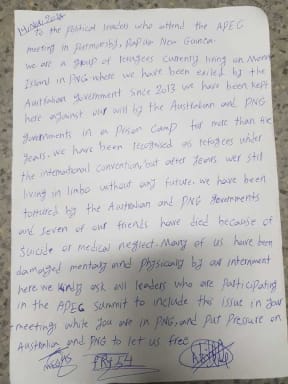 14 Nov 2018
to the political leaders who attend the APEC
meeting in portmorsby, Papua New Guinea.
we are a group of refugees currently living on Manus
Island in PNG where we have been exiled by the
Australian government since 2013 we have been kept
here against our will by the Australian and PNG
governments in a prison camp for more than
years. we have been recognised as refugees under
the international convention, but after years wer still
living in limbo without any future. we have been
tortured by the Australian and PNG governments
and seven of our friends have died because of
suicide or medical neglect. Many of us have been
damaged mentaly and physically by our internment
here we kindly ask all leaders who are participating
in the APEC summit to include this issue in your
meetings while you are in PNG, and put pressure on
Australian and PNG to let us free